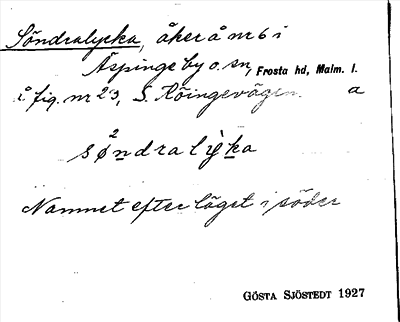 Söndralycka, åker å nr 6 i
Äspinge by o. sn, Frosta hd, Malm. l.
å fig. nr 23, S. Röingevägen. a
2
søndralỳka
Namnet efter läget i söder
GÖSTA SJÖSTEDT 1927